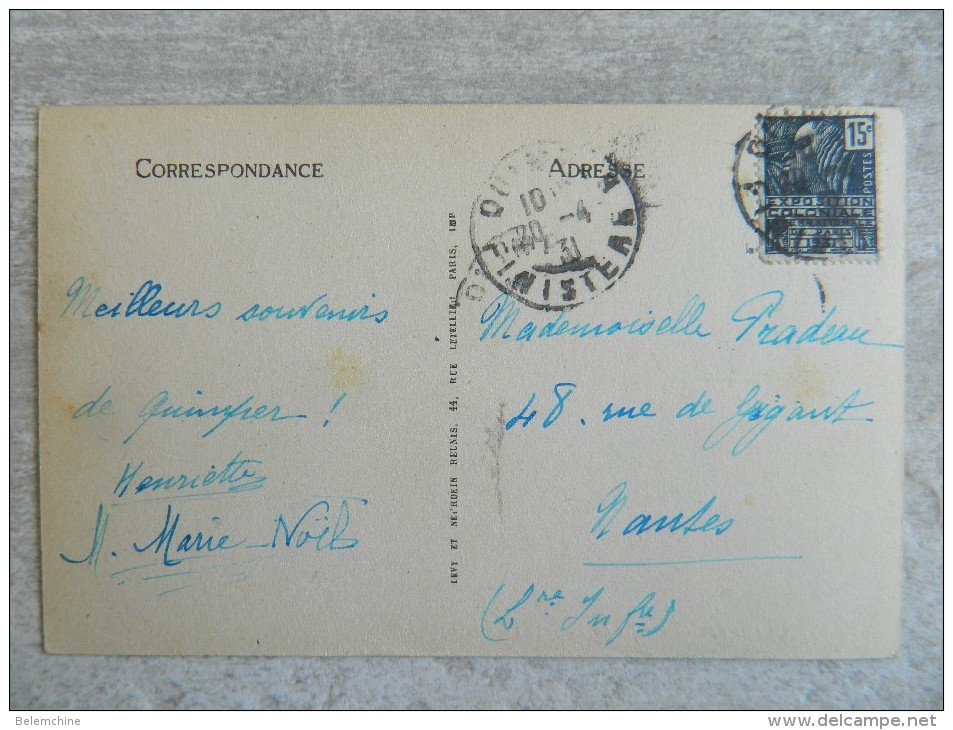 CORRESPONDANCE
Meilleurs souvenirs
de Quimper !
Henriette
M. Marie-Noël
LEVY ET NEURDEIN REUNIS, 44, RUE LETELLIER PARIS, IMP
ADRESSE
10
20 -4
31
FINISTERE
15c
POSTES
EXPOSITION
COLONIALE
Mademoiselle Pradeau
48. rue de Gigant
Nantes
(Lre Infre)
Belemchine
delcampe.net